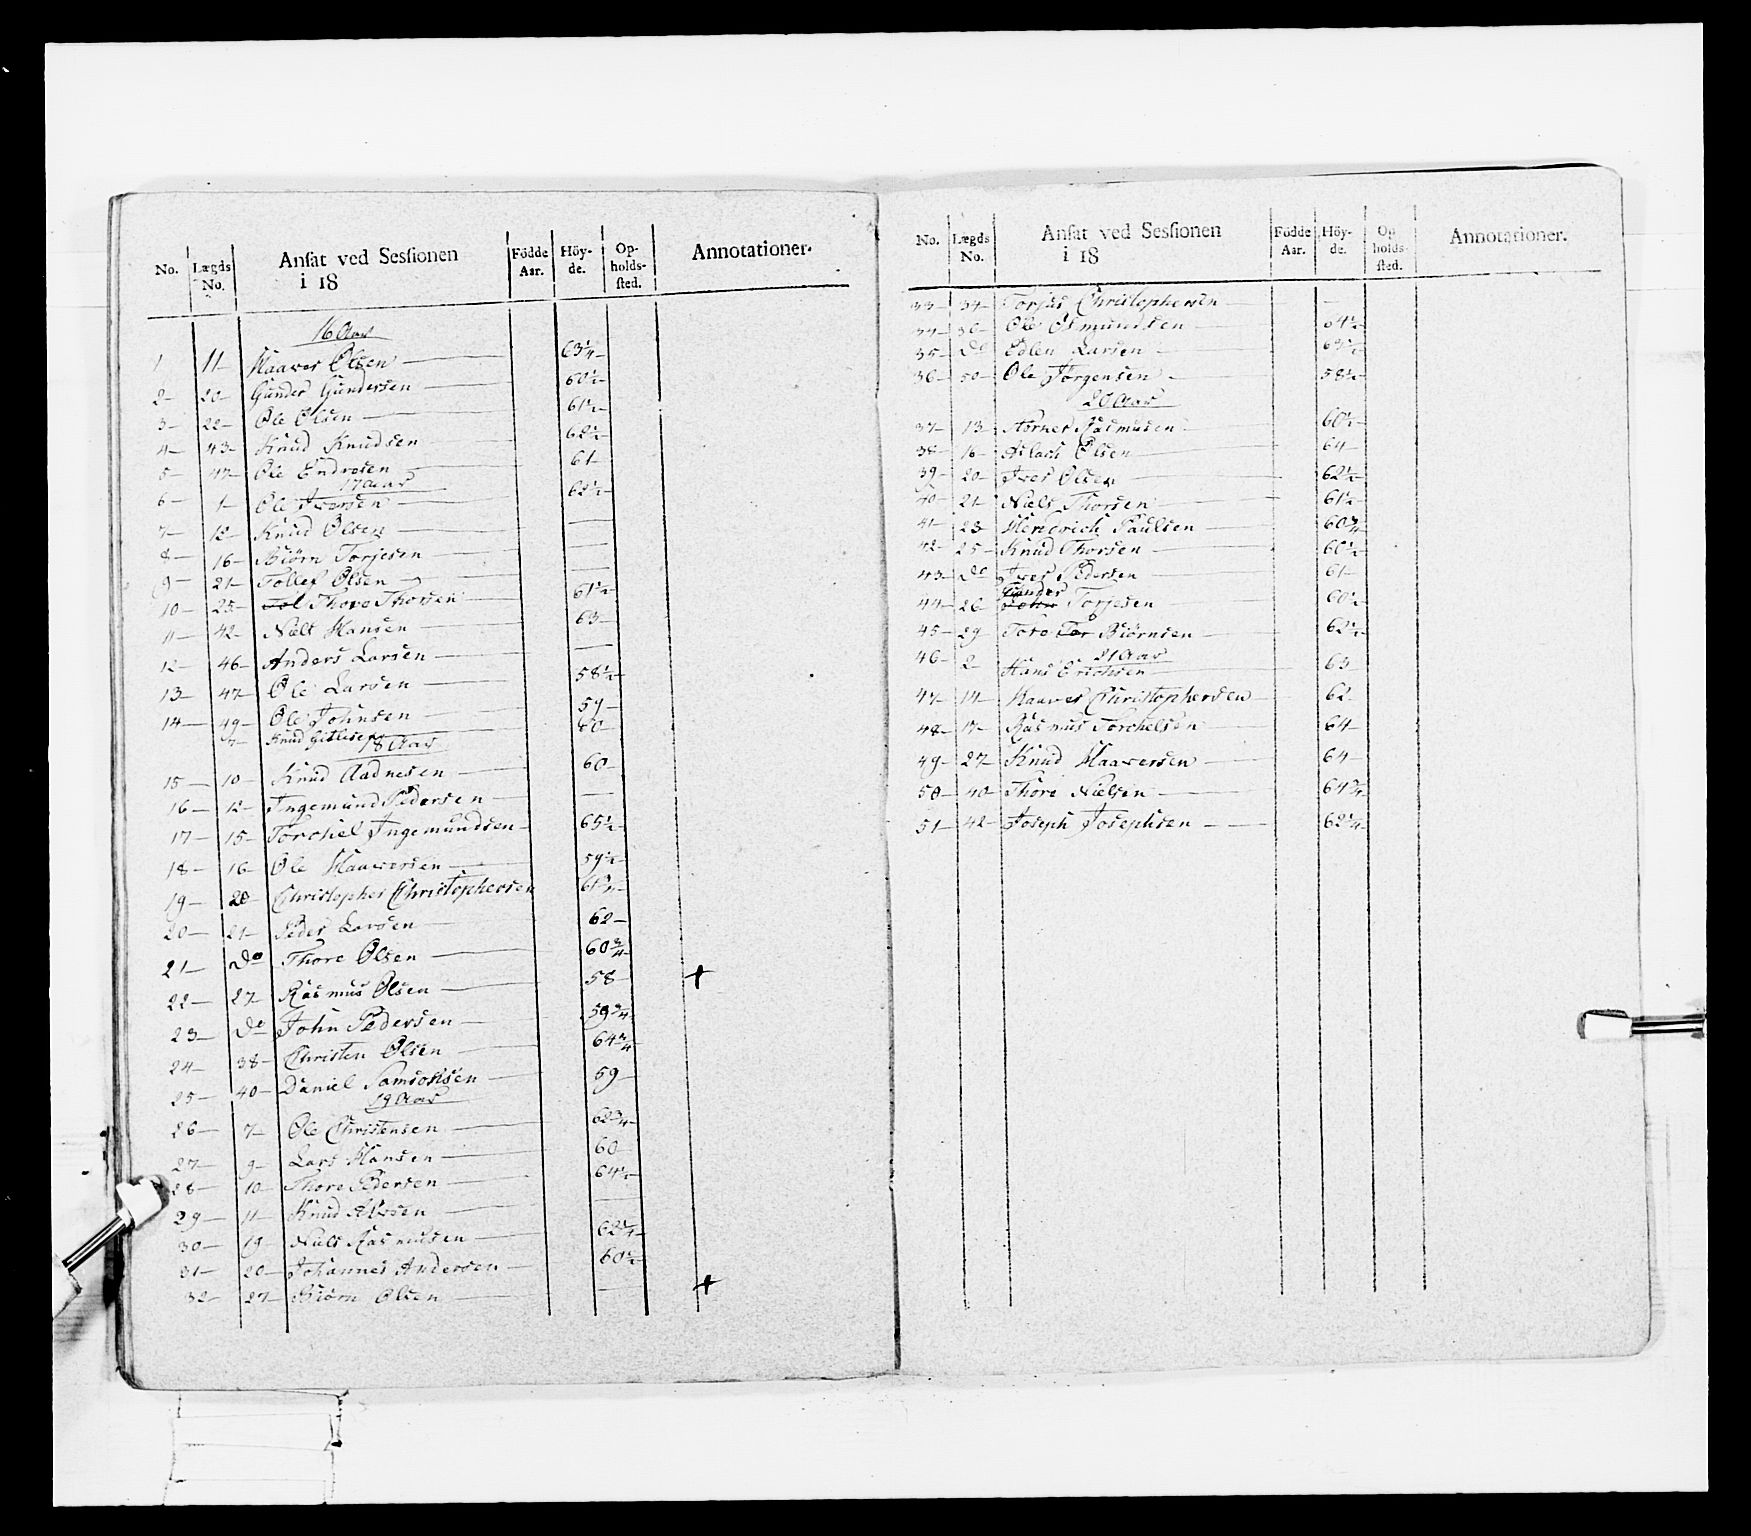 No. Lægds No. Ansat ved Sessionen i 18 Födde Aar. Höyde. Opholds-sted. Annotationer.
16 Aar
1 11 Haaver Olsen 63 1/4
2 20 Gunder Gundersen 60 1/2
3 22 Ole Olsen 61 1/2
4 43 Knud Knudsen 62 1/2
5 47 Ole Endresen 61
17 Aar
6 1 Ole Iversen 62 1/2
7 12 Knud Olsen —
8 16 Biörn Torjesen —
9 21 Tollef Olsen —
10 25 Thore Thorsen 61 1/2
11 42 Niels Hansen 63
12 46 Anders Larsen —
13 47 Ole Larsen 58 1/2
14 49 Ole Johnsen 59
7 Knud 60
18 Aar
15 10 Knud Aadnesen 60
16 12 Ingemund Pedersen —
17 15 Torchel Ingemundsen 65 1/2
18 16 Ole Haaversen 59 1/2
19 20 Christopher Christophersen
20 21 Peder Larsen 62
21 Do Thore Olsen 60 3/4
22 27 Rasmus Olsen 58 +
23 Do John Pedersen 59 3/4
24 38 Christen Olsen 64 3/4
25 40 Daniel Samsonsen 59
19 Aar
26 7 Ole Christensen 62 3/4
27 9 Lars Hansen 60
28 10 Thore Pedersen 64 1/2
29 11 Knud —
30 19 Niels Rasmusen 62 1/4
31 20 Johannes Andersen 60 1/2
32 27 Biörn Olsen — +
No. Lægds No. Ansat ved Sessionen i 18 Födde Aar. Höy-de. Op holds-sted. Annotationer.
33 34 Torjus Christophersen —
34 36 Ole Osmundsen 64 1/2
35 Do Edlen Larsen
36 50 Ole Jörgensen 58 1/2
20 Aar
37 13 Rasmusen 60 1/2
38 16 Aslach Olsen 64
39 20 Iver Olsen 62 1/2
40 21 Niels Thorsen 61 1/2
41 23 Henderich Paulsen 60 3/4
42 25 Knud Thorsen 60 1/2
43 Do Iver Pedersen 61
44 26 Gunder Torjesen 60 1/2
45 29 Tore Biörnsen 62 1/2
21 Aar
46 2 Hans Erichsen 63
47 14 Haaver Christophersen 62
48 17 Rasmus Torchelsen 64
49 27 Knud Haaversen 64
50 40 Thore Nielsen 64 3/4
51 42 Joseph Josephsen 62 1/4